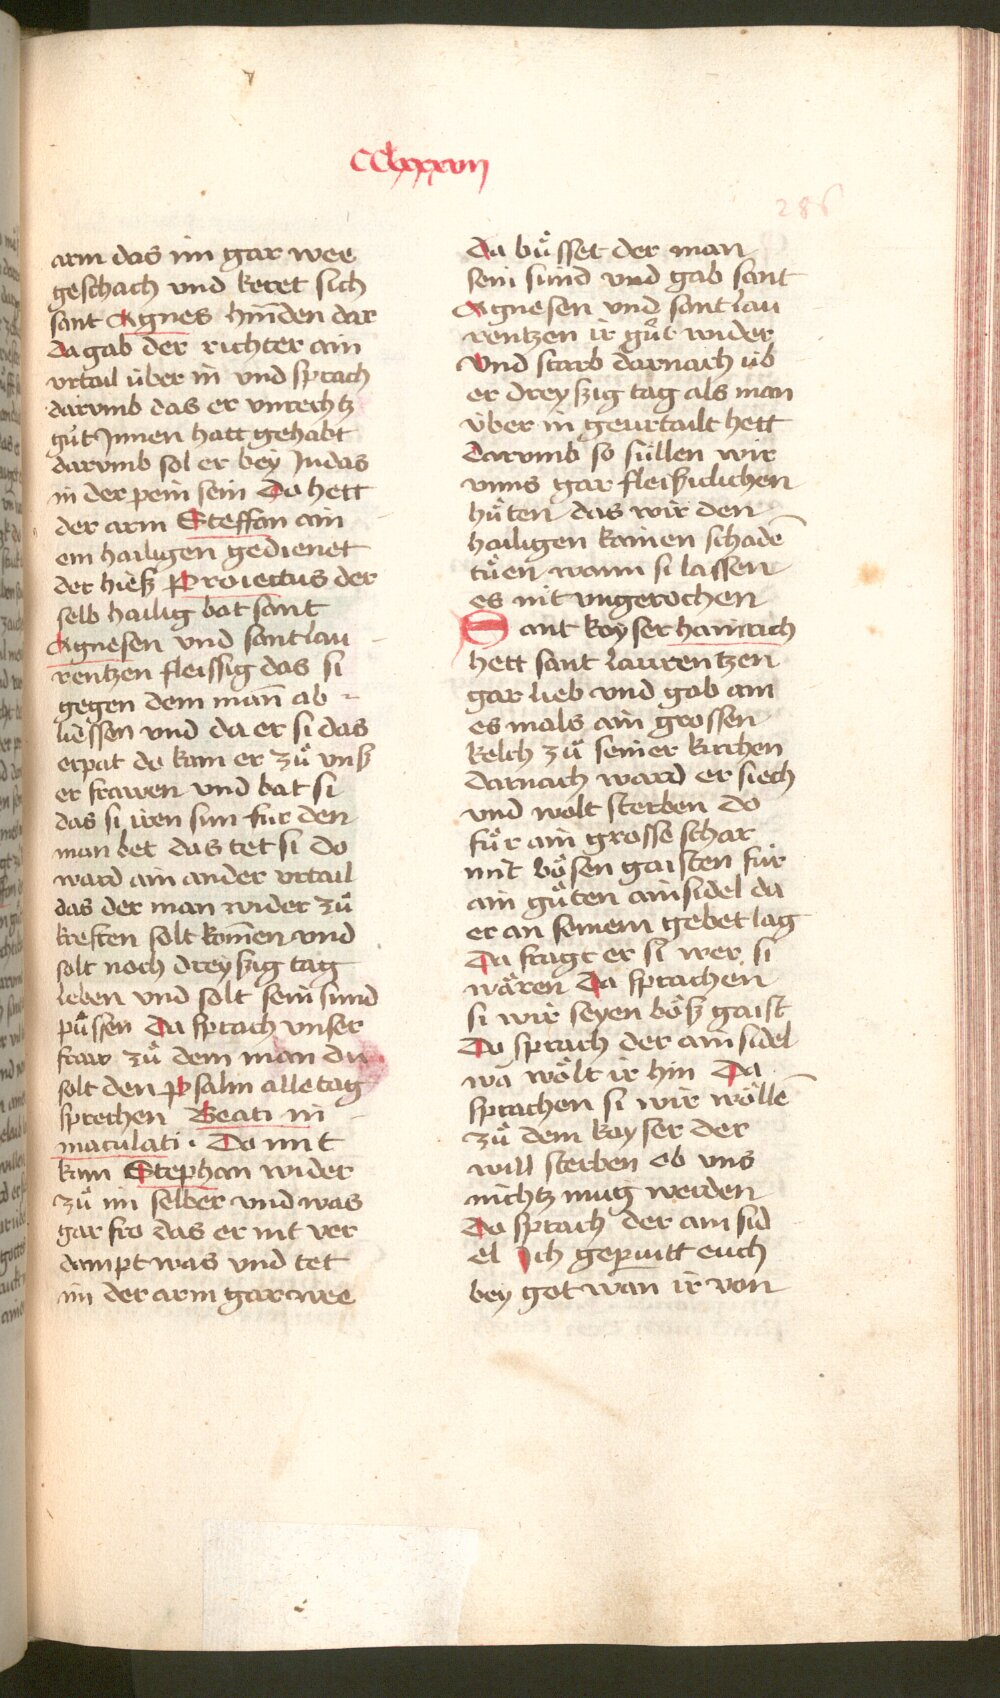 CClxxxvii
286
arm das im gar wee
geschach vnd keret sich
sant Agnes hinden dar
Da gab der richter ain
vrtail über in vnd sprach
darvmb das er vnrechtz
gůt Jnnen hatt gehabt
darvmb sol er bey Judas
in der pein sein Do hett
der arm Steffan ain
em hailigen gedienet
der hieß Proiectus der
selb hailig bat sant
Agnesen vnd sant lau
rentzen fleissig das si
gegen dem man̄ ab
liessen vnd da er si das
erpat do kam er zů vnß
er frawen vnd bat si
das si iren sun für den
man bet das tet si do
ward ain ander vrtail
das der man wider zů
kreften solt kom̄en vnd
solt noch dreyßig tag
leben vnd solt sein sund
půssen Da sprach vnser
fraw zů dem man du
solt den Psalm alle tag
sprechen Beati in
maculati · Do mit
kam Stephan wider
zů im selber vnd was
gar fro das er nit ver
dampt was vnd tet
im der arm gar wee
Da bůsset der man
sein sünd vnd gab sant
Agnesen vnd sant lau
rentzen ir gůt wider
Vnd starb darnach üb
er dreyßig tag als man
über in geurtailt hett
Darvmb so süllen wir
vnns gar fleißiclichen
hůten das wir den
hailigen kainen schadē
tůen wann si lassen
es nit vngerochen
Sant kayser hainrich
hett sant laurentzen
gar lieb vnd gab am
es mals ain grossen
kelch zů seiner kirchen
Darnach ward er siech
vnd wolt sterben do
fůr ain grosse schar
mit bösen gaisten für
ain gůten ainsidel da
er an seinem gebet lag
Da fragt er si wer si
wären Da sprachen
si wir seyen böß gaist
Do sprach der ainsidel
wa wölt ir hin Da
sprachen si wir wöllē
zů dem kayser der
will sterben ob vns
nichtz mug werden
Do sprach der ain sid
el Jch gepuitt euch
bey got wan ir von